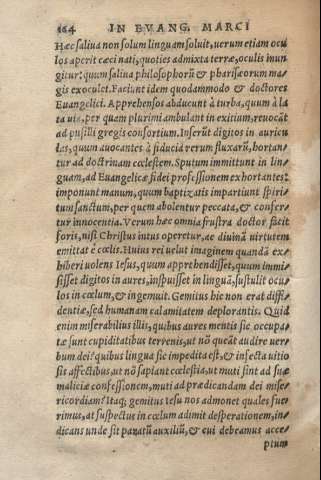 164 IN EVANG. MARCI
Hæc saliva non solum linguam soluit, uerum etiam ocu
los aperit cæci nati, quoties admixta terræ, oculis inun/
gitur: quum salina philosophorũ & pharisæorum ma/
gis exoculet. Faciunt idem quodammodo & doctores
Euangelici. Apprehensos abducunt à turba, quum à la
ta uia, per quam plurimi ambulant in exitium, reuocãt
ad pusilli gregis consortium. Inserũt digitos in auricu
las, quum auocantes à fiducia rerum fluxarũ, hortan/
tur ad doctrinam cœlestem. Sputum immittunt in lin/
guam, ad Euangelicæ fidei professionem exhortantes:
imponunt manum, quum baptizatis impartiunt spiri/
tum sanctum, per quem abolentur peccata, & confer/
tur innocentia. Verum hæc omnia frustra doctor facit
foris, nisi Christus intus operetur, ac diuinã uirtutem
emittat è cœlis. Huius rei uelut imaginem quandã ex/
hiberi uolens Iesus, quum apprehendisset, quum immi/
sisset digitos in aures, inspuisset in linguã, sustulit ocu/
los in cœlum, & ingemuit. Gemitus hic non erat diffi/
dentiæ, sed humanam calamitatem deplorantis. Quid
enim miserabilius illis, quibus aures mentis sic occupa/
tæ sunt cupiditatibus terrenis, ut nõ queãt audire uer/
bum dei? quibus lingua sic impedita est, & infecta uitio
sis affectibus, ut nõ sapiant cœlestia, ut muti sint ad suæ
maliciæ confessionem, muti ad prædicandam dei mise/
ricordiam? Itaq; gemitus Iesu nos admonet quales fue/
rimus, at suspectus in cœlum adimit desperationem, in/
dicans unde sit paratũ auxiliũ, & cui debeamus acce/
ptum